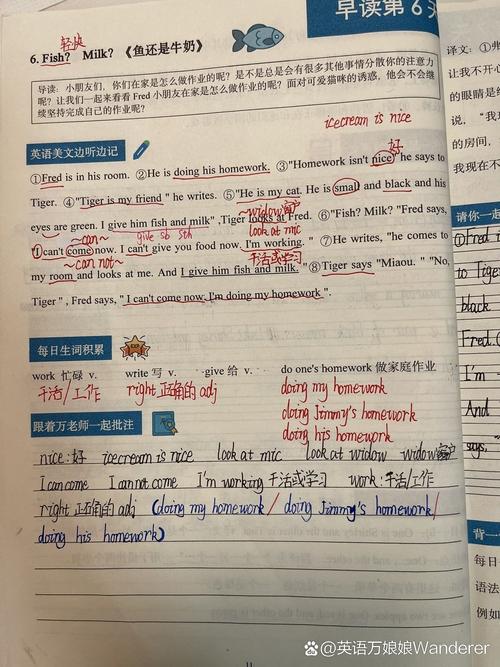 早读第6天
轻快
6. Fish? Milk? 《鱼还是牛奶》
导读: 小朋友们, 你们在家是怎么做作业的呢? 是不是总是会有很多其他事情分散你的注意力
呢? 让我们一起来看看 Fred 小朋友在家是怎么做作业的呢? 面对可爱猫咪的诱惑, 他会不会继
续坚持完成自己的作业呢?
icecream is nice
英语美文边听边记
好
①Fred is in his room. ②He is doing his homework. ③"Homework isn't nice," he says to
Tiger. ④"Tiger is my friend " he writes. ⑤"He is my cat. He is small and black and his
widow 窗户
eyes are green. I give him fish and milk" ,Tiger looks at Fred. ⑥"Fish? Milk? "Fred says,
can give sb sth look at mic
"I can't come now. I can't give you food now. I'm working. " ⑦He writes, "he comes to
can not 干活或学习
my room and looks at me. And I give him fish and milk. "⑧Tiger says "Miaou. " "No,
Tiger " , Fred says, " I can't come now. I'm doing my homework ".
每日生词积累
work 忙碌 v. write 写 v. give 给 v. do one's homework 做家庭作业
干活/工作 right 正确的 adj doing my homework
doing Jimmy's homework
doing his homework
跟着万老师一起批注
nice:好 icecream is nice look at mic look at widow widow窗户
I can come I can not come I'm working 干活或学习 work:干活/工作
right 正确的 adj (doing my homework/ doing Jimmy's homework/
doing his homework)
11
译文: ①
让我不开心
的眼睛是绿
说, "我现
的房间,
我现在不
请你一起
①Fred i
to Tiger
black
Fred.
I'm
And
says,
每日
语法
例如
@英语万娘娘Wanderer